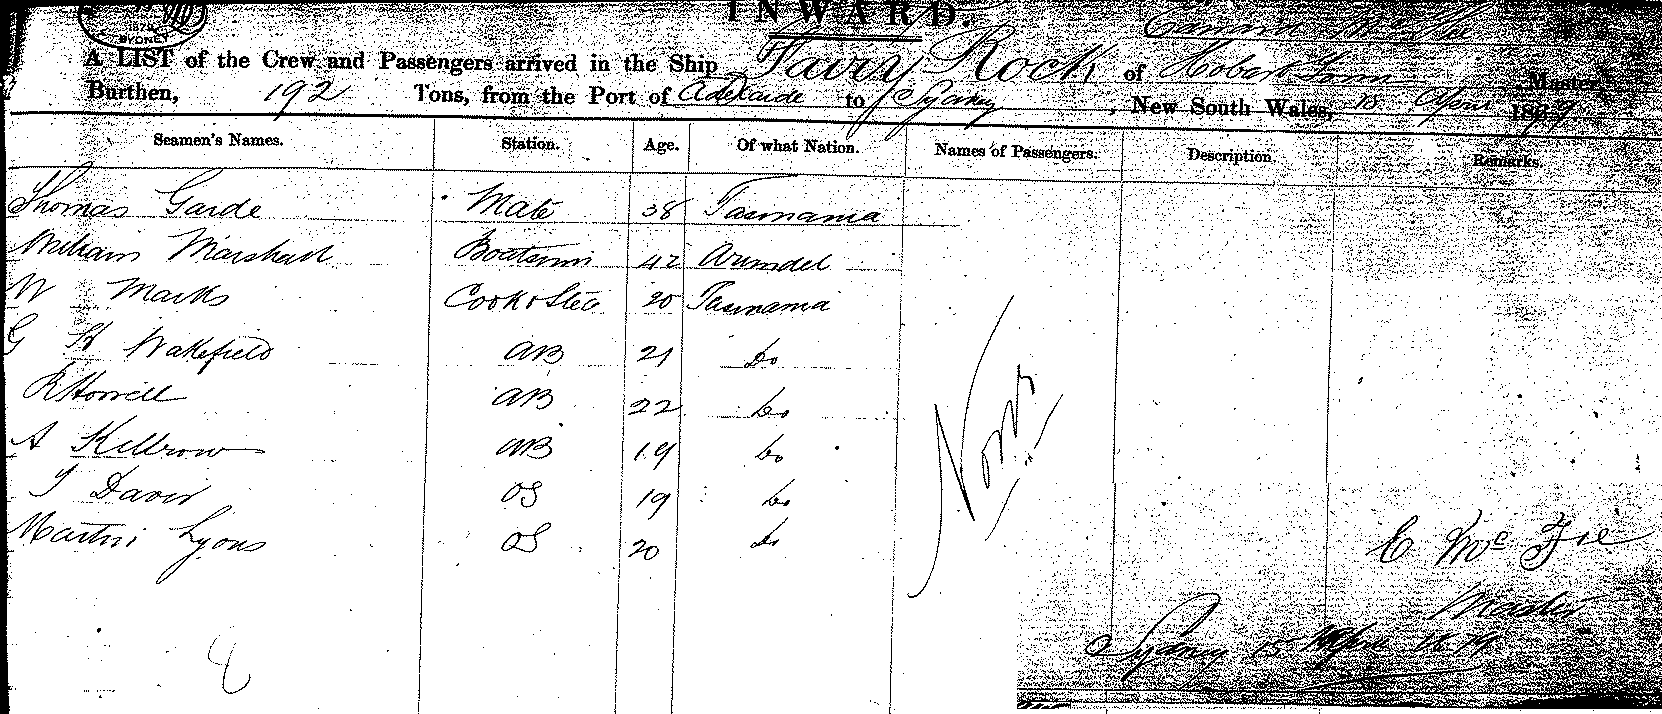 INWARD.
SYDNEY
A LIST of the Crew and Passengers arrived in the Ship Fairy Rock of Hobart Town Master,
Burthen, 192 Tons, from the Port of Adelaide to Sydney, New South Wales, 15 April 1879
Seamen's Names. Station. Age. Of what Nation. Names of Passengers. Description. Remarks.
Thomas Garde Mate 38 Tasmania
William Marshall Boatswn 42 Arundel
W Marks Cook & Stew 20 Tasmania
G H Wakefield AB 21 Do
R Horrell AB 22 Do
A Kellrow AB 19 Do
T Davis OS 19 Do
Martin Lyons OS 20 Do
None
C McFie
Master
Sydney 15 April 1879
8